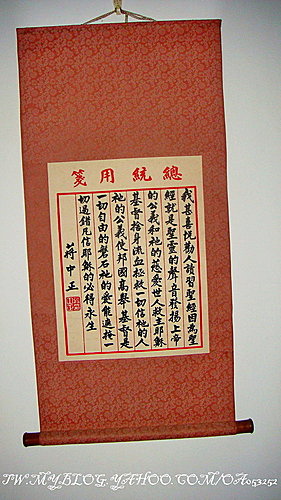 總統用箋
我甚喜悅勸人讀習聖經因為聖
經就是聖靈的聲音發揚上帝
的公義和祂的慈愛世人救主耶穌
基督捨身流血拯救一切信祂的人
祂的公義使邦國高舉基督是
一切自由的磐石祂的愛能遮掩一
切過錯凡信耶穌的必得永生
蔣中正
TW.MYBLOG.YAHOO.COM/OA053252